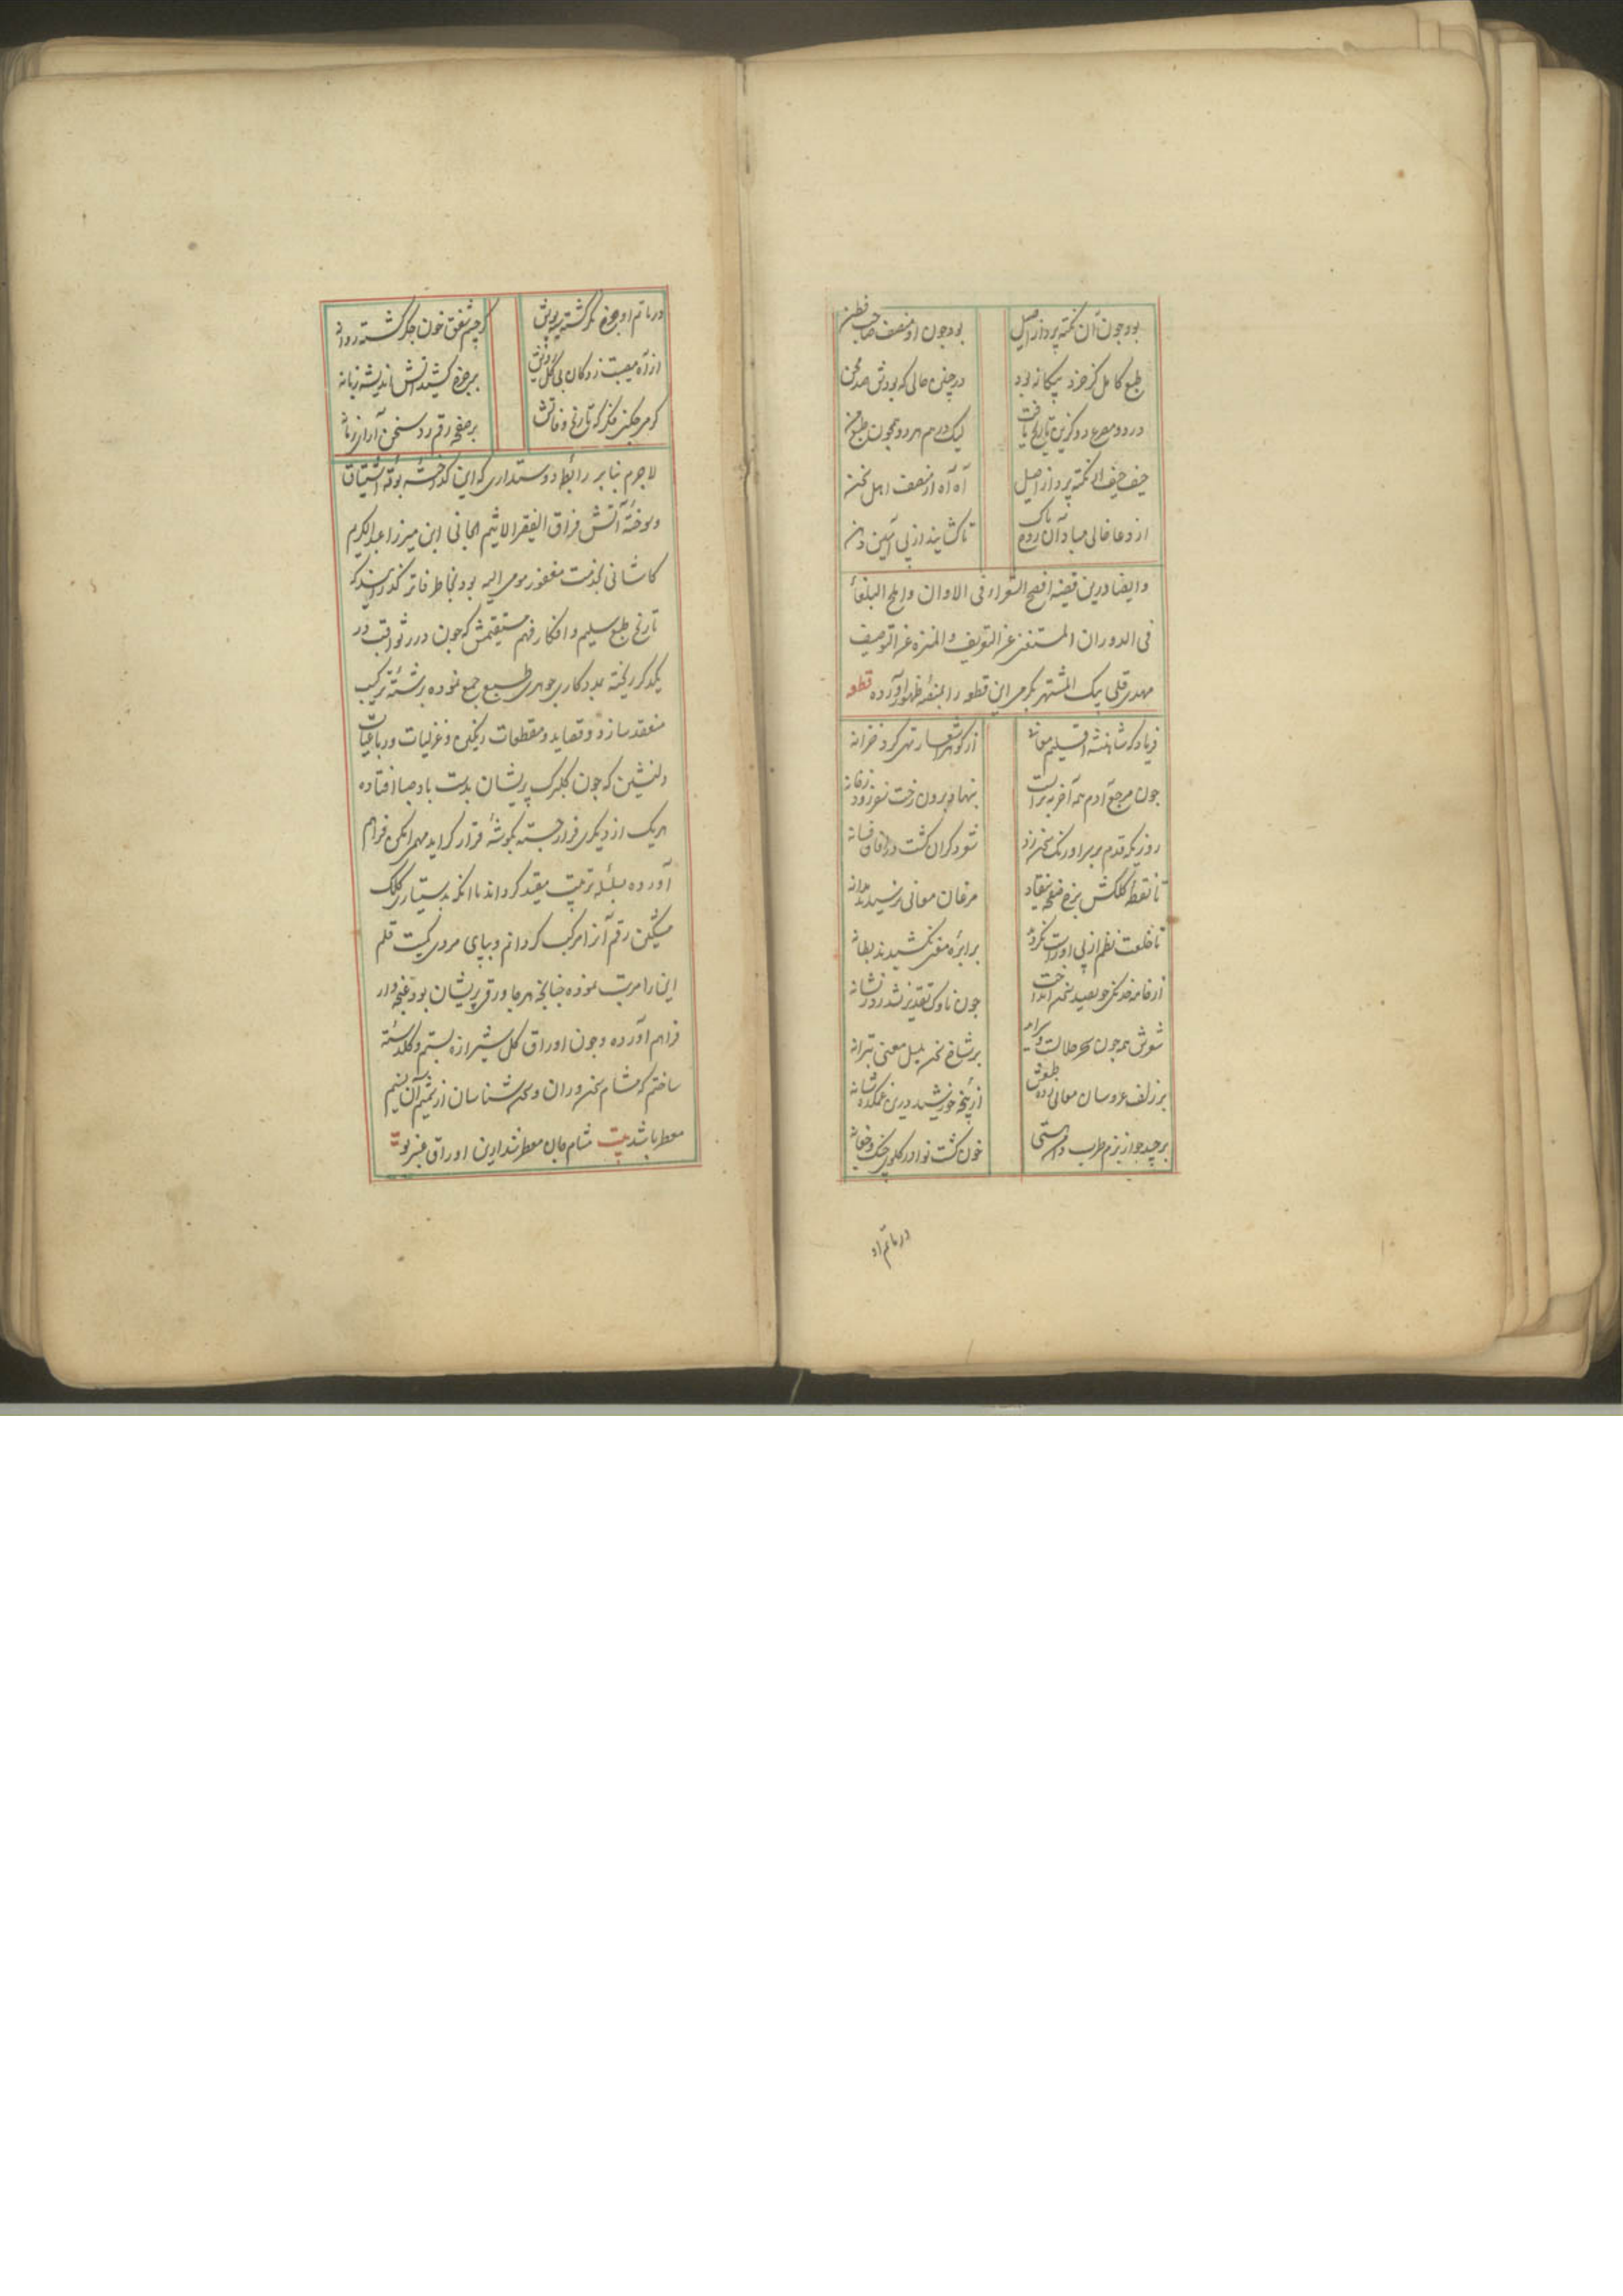 بود چون آن نکته پرداز اصیل بود چون او منصف صاحب فطن
طبع کامل کز خرد بیکانه بود در چنین حالی که بودش صد محن
در دو مصرع دو کزین تاریخ یافت لیک در هم هر دو همچون طبع من
حیف حیف از نکته پرداز اصیل آه آه از منصف اهل سخن
از دعا خالی مبادا آن روح پاک تا کشایند از پی آمین دهن
و ایضا درین قضیه افصح الشعراء فی الاوان و املح البلغاء
فی الدوران المستغنی عن التعریف و المنزه عن التوصیف
مهدی قلی بیک المشتهر این قطعه را بمنصه ظهور آورده قطعه
فریاد که شاهنشه اقلیم معانی از کوهر اشعار تهی کرد خزانه
چون مرجع آدم همه آخر به تراب است بنهاد برون رخت سفر زود ز خانه
روزیکه قدم بر سر اورنک سخن زد شعر دکران کشت در آفاق فسانه
تا نقطه کلکش بر صفحه نیفتاد مرغان معانی نرسیدند بدانه
تا خلعت نظم از پی او راست نکردند بر ابره معنی نکشیدند بطانه
از خامه خدنکی چو بصید سخن انداخت چون ناوک تقدیر نشد رد ز نشانه
شعرش همه چون سحر حلالست بر شاخ سخن بلبل معنی ترانه
بر زلف عروسان معانی زده طبعش از پنجه خورشید درین غمکده شانه
برچید چو از بزم طرب دامن هستی خون کشت نوا در کلوی چنک و چغانه
در ماتم او
در ماتم او چرخ مکر کشته سیه پوش کز چشم شفق خون جکر کشت روانه
از آه مصیبت زدکان بی کل رویش بر چرخ کشید آتش اندیشه زبانه
کومی چکنی فکر که تاریخ وفاتش بر صفحه رقم زد سخن آرای زمانه
لاجرم بنا بر رابطه دوستداری که این کداخته بوته اشتیاق
و سوخته آتش فراق الفقیر الاثیم الجانی ابن میرزا عبدالکریم
کاشانی بخدمت مغفور مومی الیه بود بخاطر فاتر کذرانید که
تاریخ طبع سلیم و افکار فهم مستقیمش که چون درر ثواقب در
یکدکر ریخته بمددکاری جوهری طبع جمع نموده برشته ترکیب
منعقد سازد و قصاید و مقطعات رنکین و غزلیات و رباعیات
دلنشین که چون کلبرک پریشان بدست باد صبا افتاده
هر یک از دیکری فرار جسته بکوشه قرار کرایده مهما امکن فراهم
آورده بسلسله ترتیب مقید کرداند تا آنکه بدستیاری کلک
مشکین رقم آنرا مرکب کردانم و بپای مردی کمیت قلم
این را مرتب نموده چنانچه هرجا ورقی پریشان بود غنچه وار
فراهم آورده و چون اوراق کل شیرازه بستم و کلدسته
ساختم که مشام سخنوران و سخن شناسان از شمیم آن نسیم
معطر باشد بیت مشام جان معطر شد ازین اوراق عنبر بو